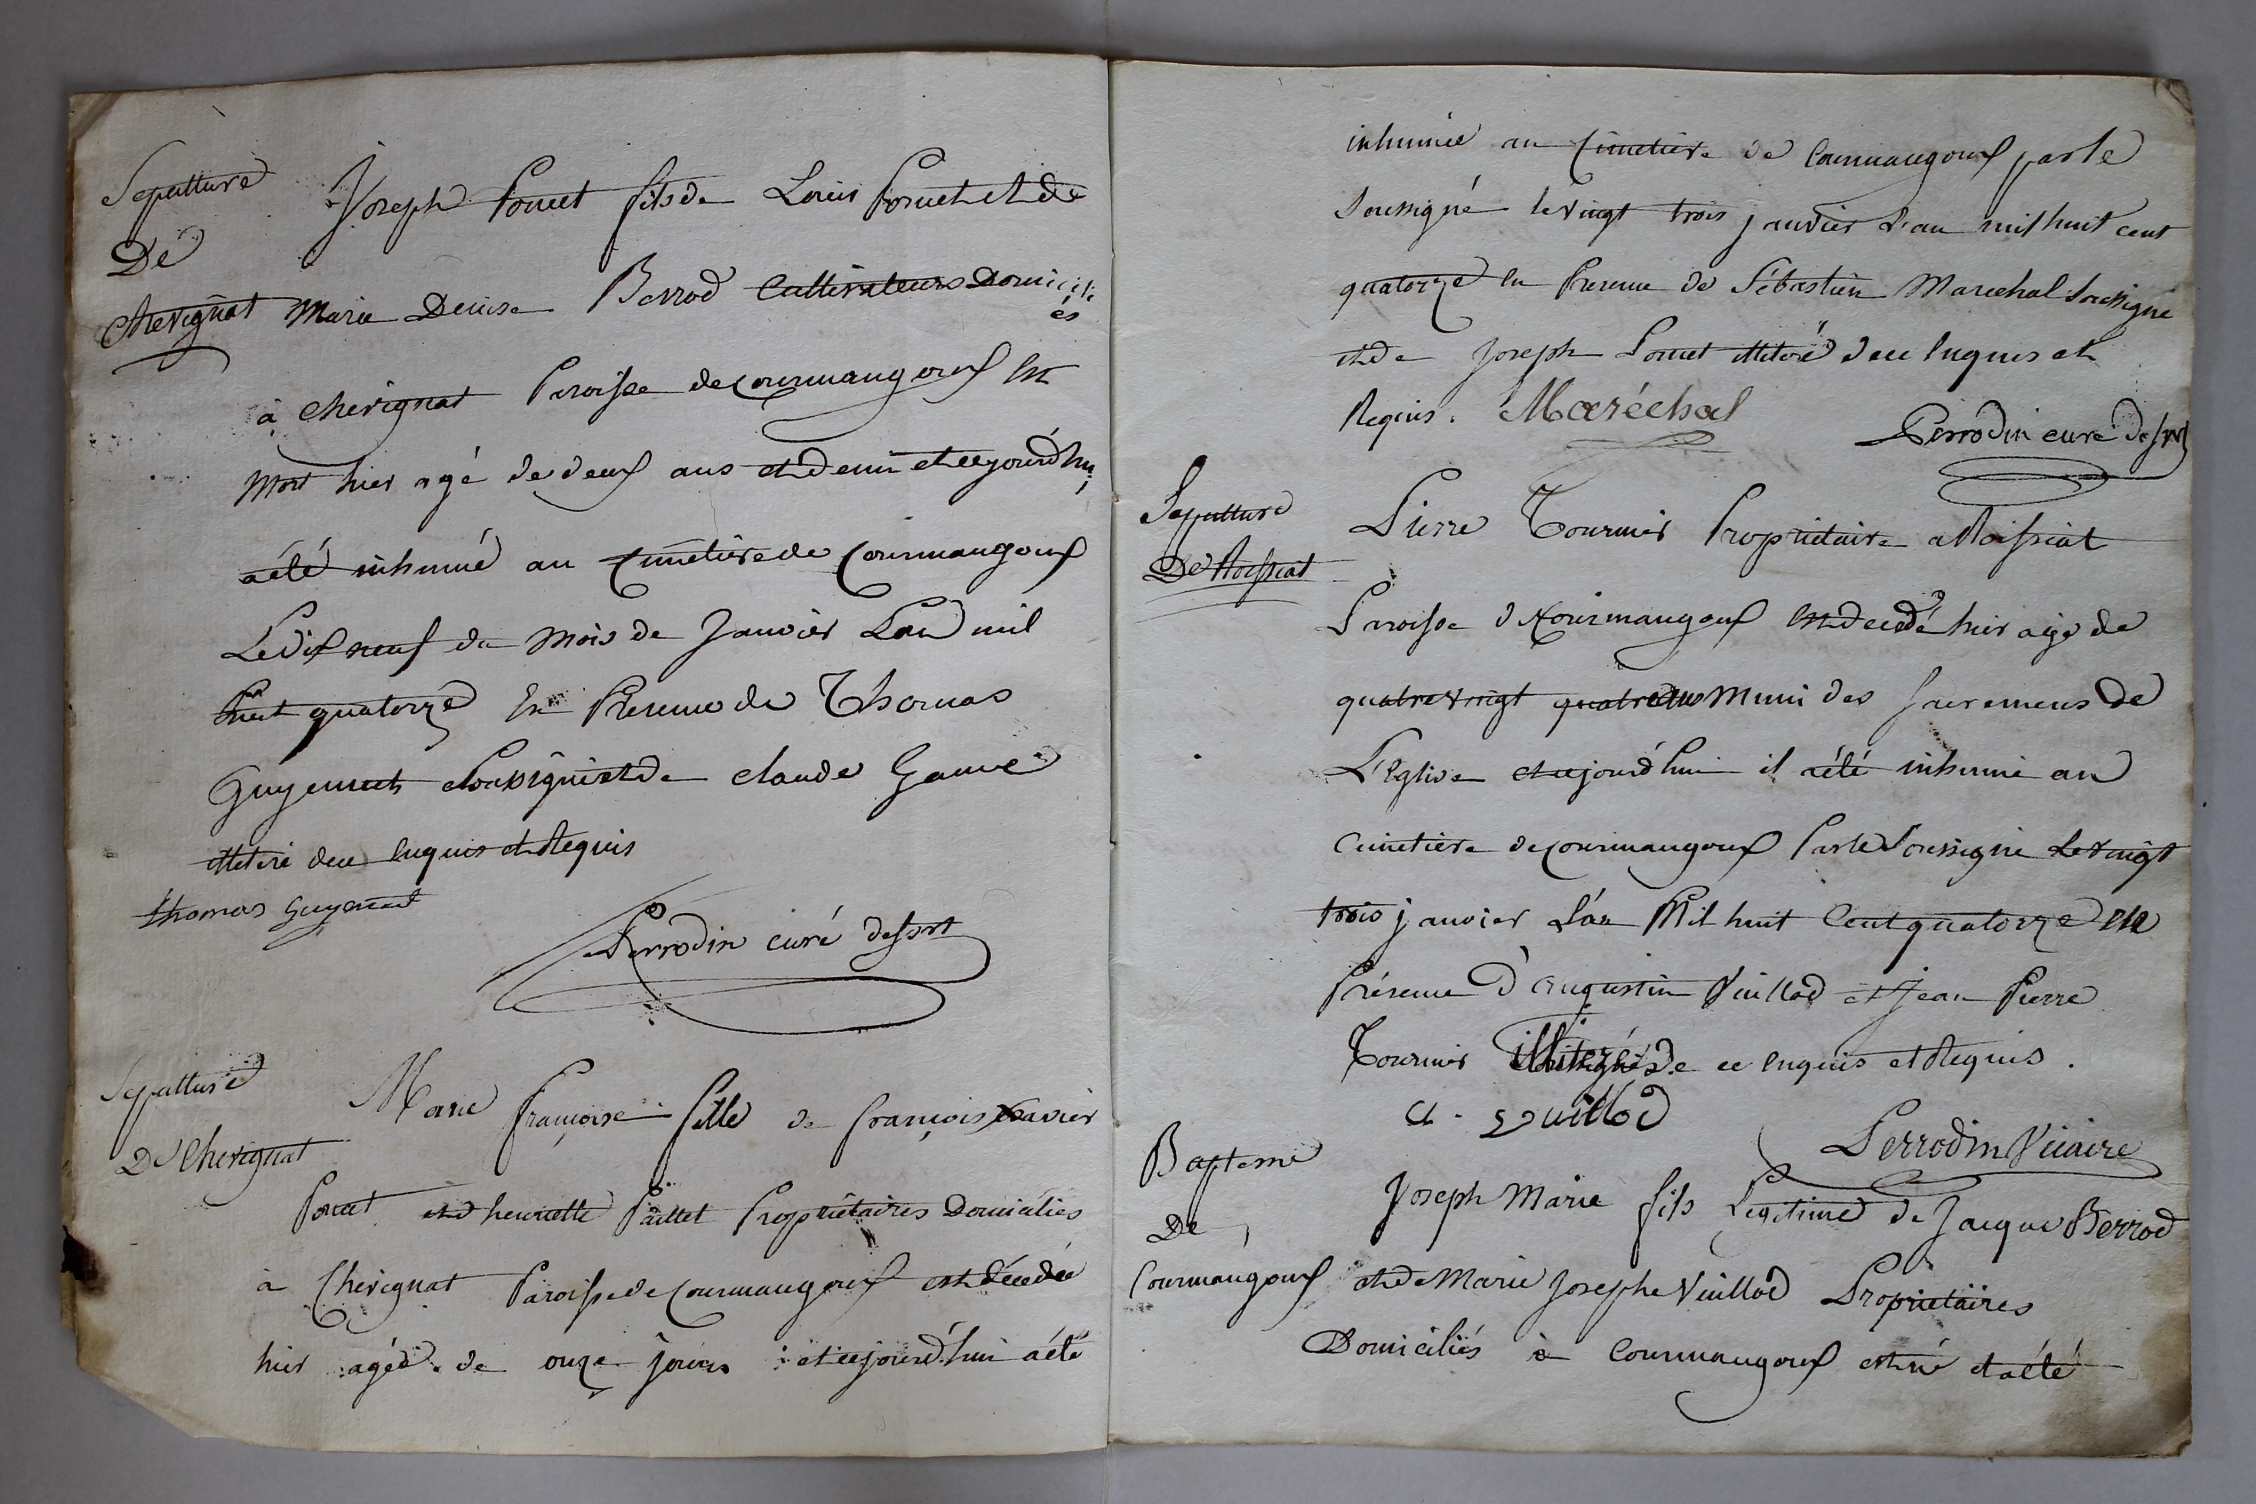 Sepulture
De
Chevignat
Joseph Poncet fils de Louis Poncet et de
Marie Denise Berrod Cultivateurs Domicili
és
à Chevignat Paroisse de Courmangoux Est
Mort hier agé de deux ans et demi et cejourd'hui
a été inhumé au Cimetière de Courmangoux
Le dix neuf du Mois de Janvier L'an mil
huit quatorze En Presence de Thomas
Guyennet soussigné et de Claude Gauve
illiteré de ce Enquis et Requis
thomas Guyennet
Perrodin curé desservt
Sepulture
De Chevignat
Marie françoise fille de françois Xavier
Poncet et d'henriette Paillet Propriétaires Domiciliés
à Chevignat Paroisse de Courmangoux est décedée
hier agée de onze jours et cejourd'hui a été
inhumée au Cimetière de Courmangoux par le
Soussigné le vingt trois janvier l'an mil huit cent
quatorze en Presence de Sébastien Marechal Soussigné
et de Joseph Poncet illiteré de ce Enquis et
Requis. Maréchal
Perrodin curé desvt
Sepulture
De Roissiat
Pierre Tournier Propriétaire a Roissiat
Paroisse de Courmangoux Est decedé hier agé de
quatre vingt quatre ans Muni des Sacremens de
L'Eglise et cejourd'hui il a été inhumé au
Cimetière de Courmangoux Par le Soussigné le vingt
trois janvier L'an Mil huit Cent quatorze en
Présence d'augustin Vuillod et Jean Pierre
Tournier illiterés de ce Enquis et Requis.
a. vuillod
Perrodin Vicaire
Bapteme
De
Courmangoux
Joseph Marie fils Legitime de Jacque Berrod
et de Marie Josephe Vuillod Propriétaires
Domiciliés à Courmangoux est né et a été